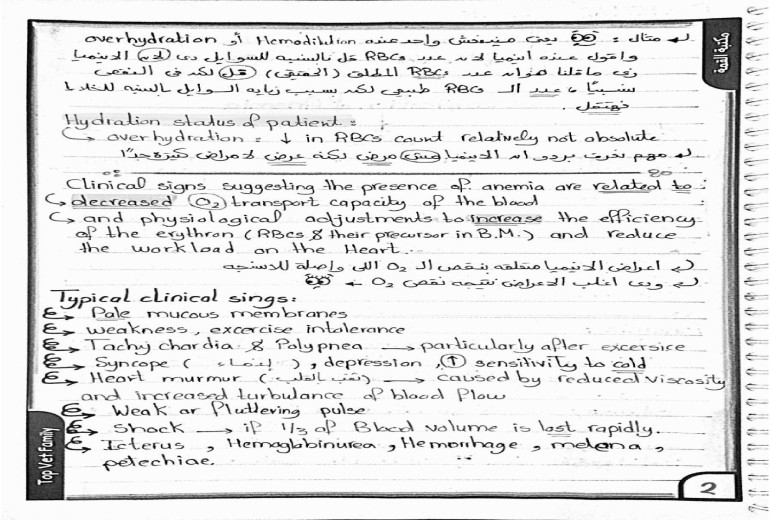 مثال : يعني مينفعش واحد عنده Hemodilution أو overhydration
واقول عنده أنيميا لان عدد RBCs قل بالنسبه للسوايل دي
زي ماقلنا هو ان عدد RBCs المطلق (الحقيقي) قل لكن في النقص
عدد الـ RBCs طبيعي لكن بسبب زياده السوايل بالنسبه للخلايا
Hydration status of patient :
overhydration = ↓ in RBCs count relatively not absolute
مهم نعرف بردو ان الانيميا مش مرض لكنه عرض لامراض كتيرة جدًا
Clinical signs suggesting the presence of anemia are related to :
decreased O2 transport capacity of the blood
and physiological adjustments to increase the efficiency
of the erythron (RBCs & their precursor in B.M.) and reduce
the workload on the Heart.
أعراض الانيميا متعلقه بنقص الـ O2 اللي واصلة للانسجه
اغلب الاعراض نتيجه نقص O2
Typical clinical sings:
Pale mucous membranes
weakness, excercise intolerance
Tachy chardia & Polypnea → particularly after excersice
Syncope (إغماء), depression, ↑ sensitivity to cold
Heart murmur → caused by reduced viscosity
and increased turbulance of blood flow
Weak or fluttering pulse
Shock → if 1/3 of Blood volume is lost rapidly.
Icterus, Hemoglobinurea, Hemorrhage, melena,
petechiae.
مكتبة القمة
Top Vet Family
2